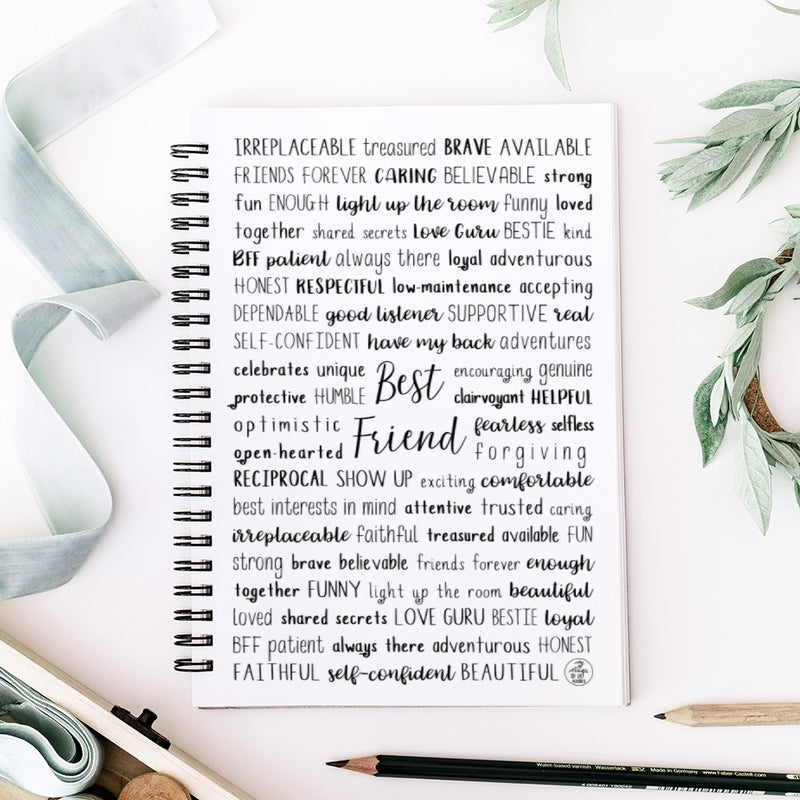 IRREPLACEABLE treasured BRAVE AVAILABLE
FRIENDS FOREVER CARING BELIEVABLE strong
fun ENOUGH light up the room funny loved
together shared secrets Love Guru BESTIE kind
BFF patient always there loyal adventurous
HONEST RESPECTFUL low-maintenance accepting
DEPENDABLE good listener SUPPORTIVE real
SELF-CONFIDENT have my back adventures
celebrates unique encouraging genuine
protective HUMBLE Best clairvoyant HELPFUL
optimistic fearless selfless
open-hearted Friend forgiving
RECIPROCAL SHOW UP exciting comfortable
best interests in mind attentive trusted caring
irreplaceable faithful treasured available FUN
strong brave believable friends forever enough
together FUNNY light up the room beautiful
loved shared secrets LOVE GURU BESTIE loyal
BFF patient always there adventurous HONEST
FAITHFUL self-confident BEAUTIFUL
Water-based varnish Wasserlack Made in Germany www.Faber-Castell.com